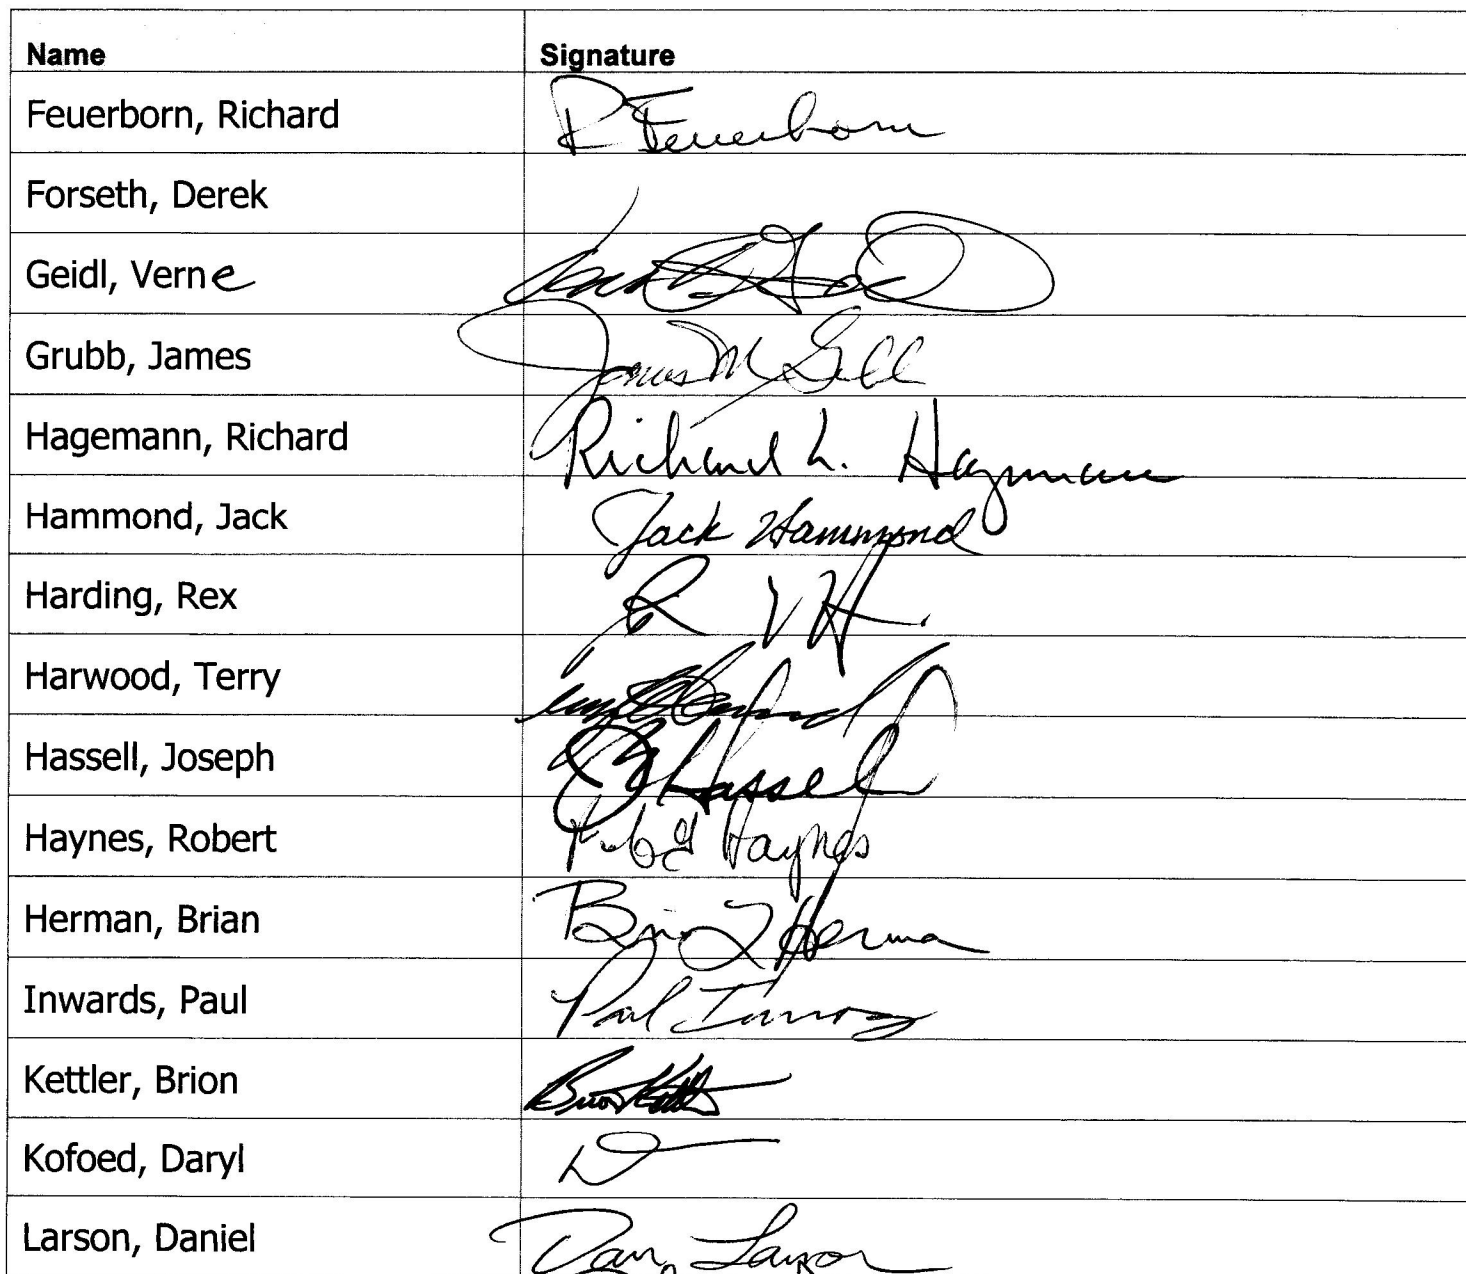 Name Signature
Feuerborn, Richard R Feuerborn
Forseth, Derek
Geidl, Verne
Grubb, James James M
Hagemann, Richard Richard L. Hagemann
Hammond, Jack Jack Hammond
Harding, Rex R V H.
Harwood, Terry
Hassell, Joseph Hassell
Haynes, Robert Haynes
Herman, Brian Herman
Inwards, Paul Paul
Kettler, Brion Brion
Kofoed, Daryl
Larson, Daniel Dan Larson